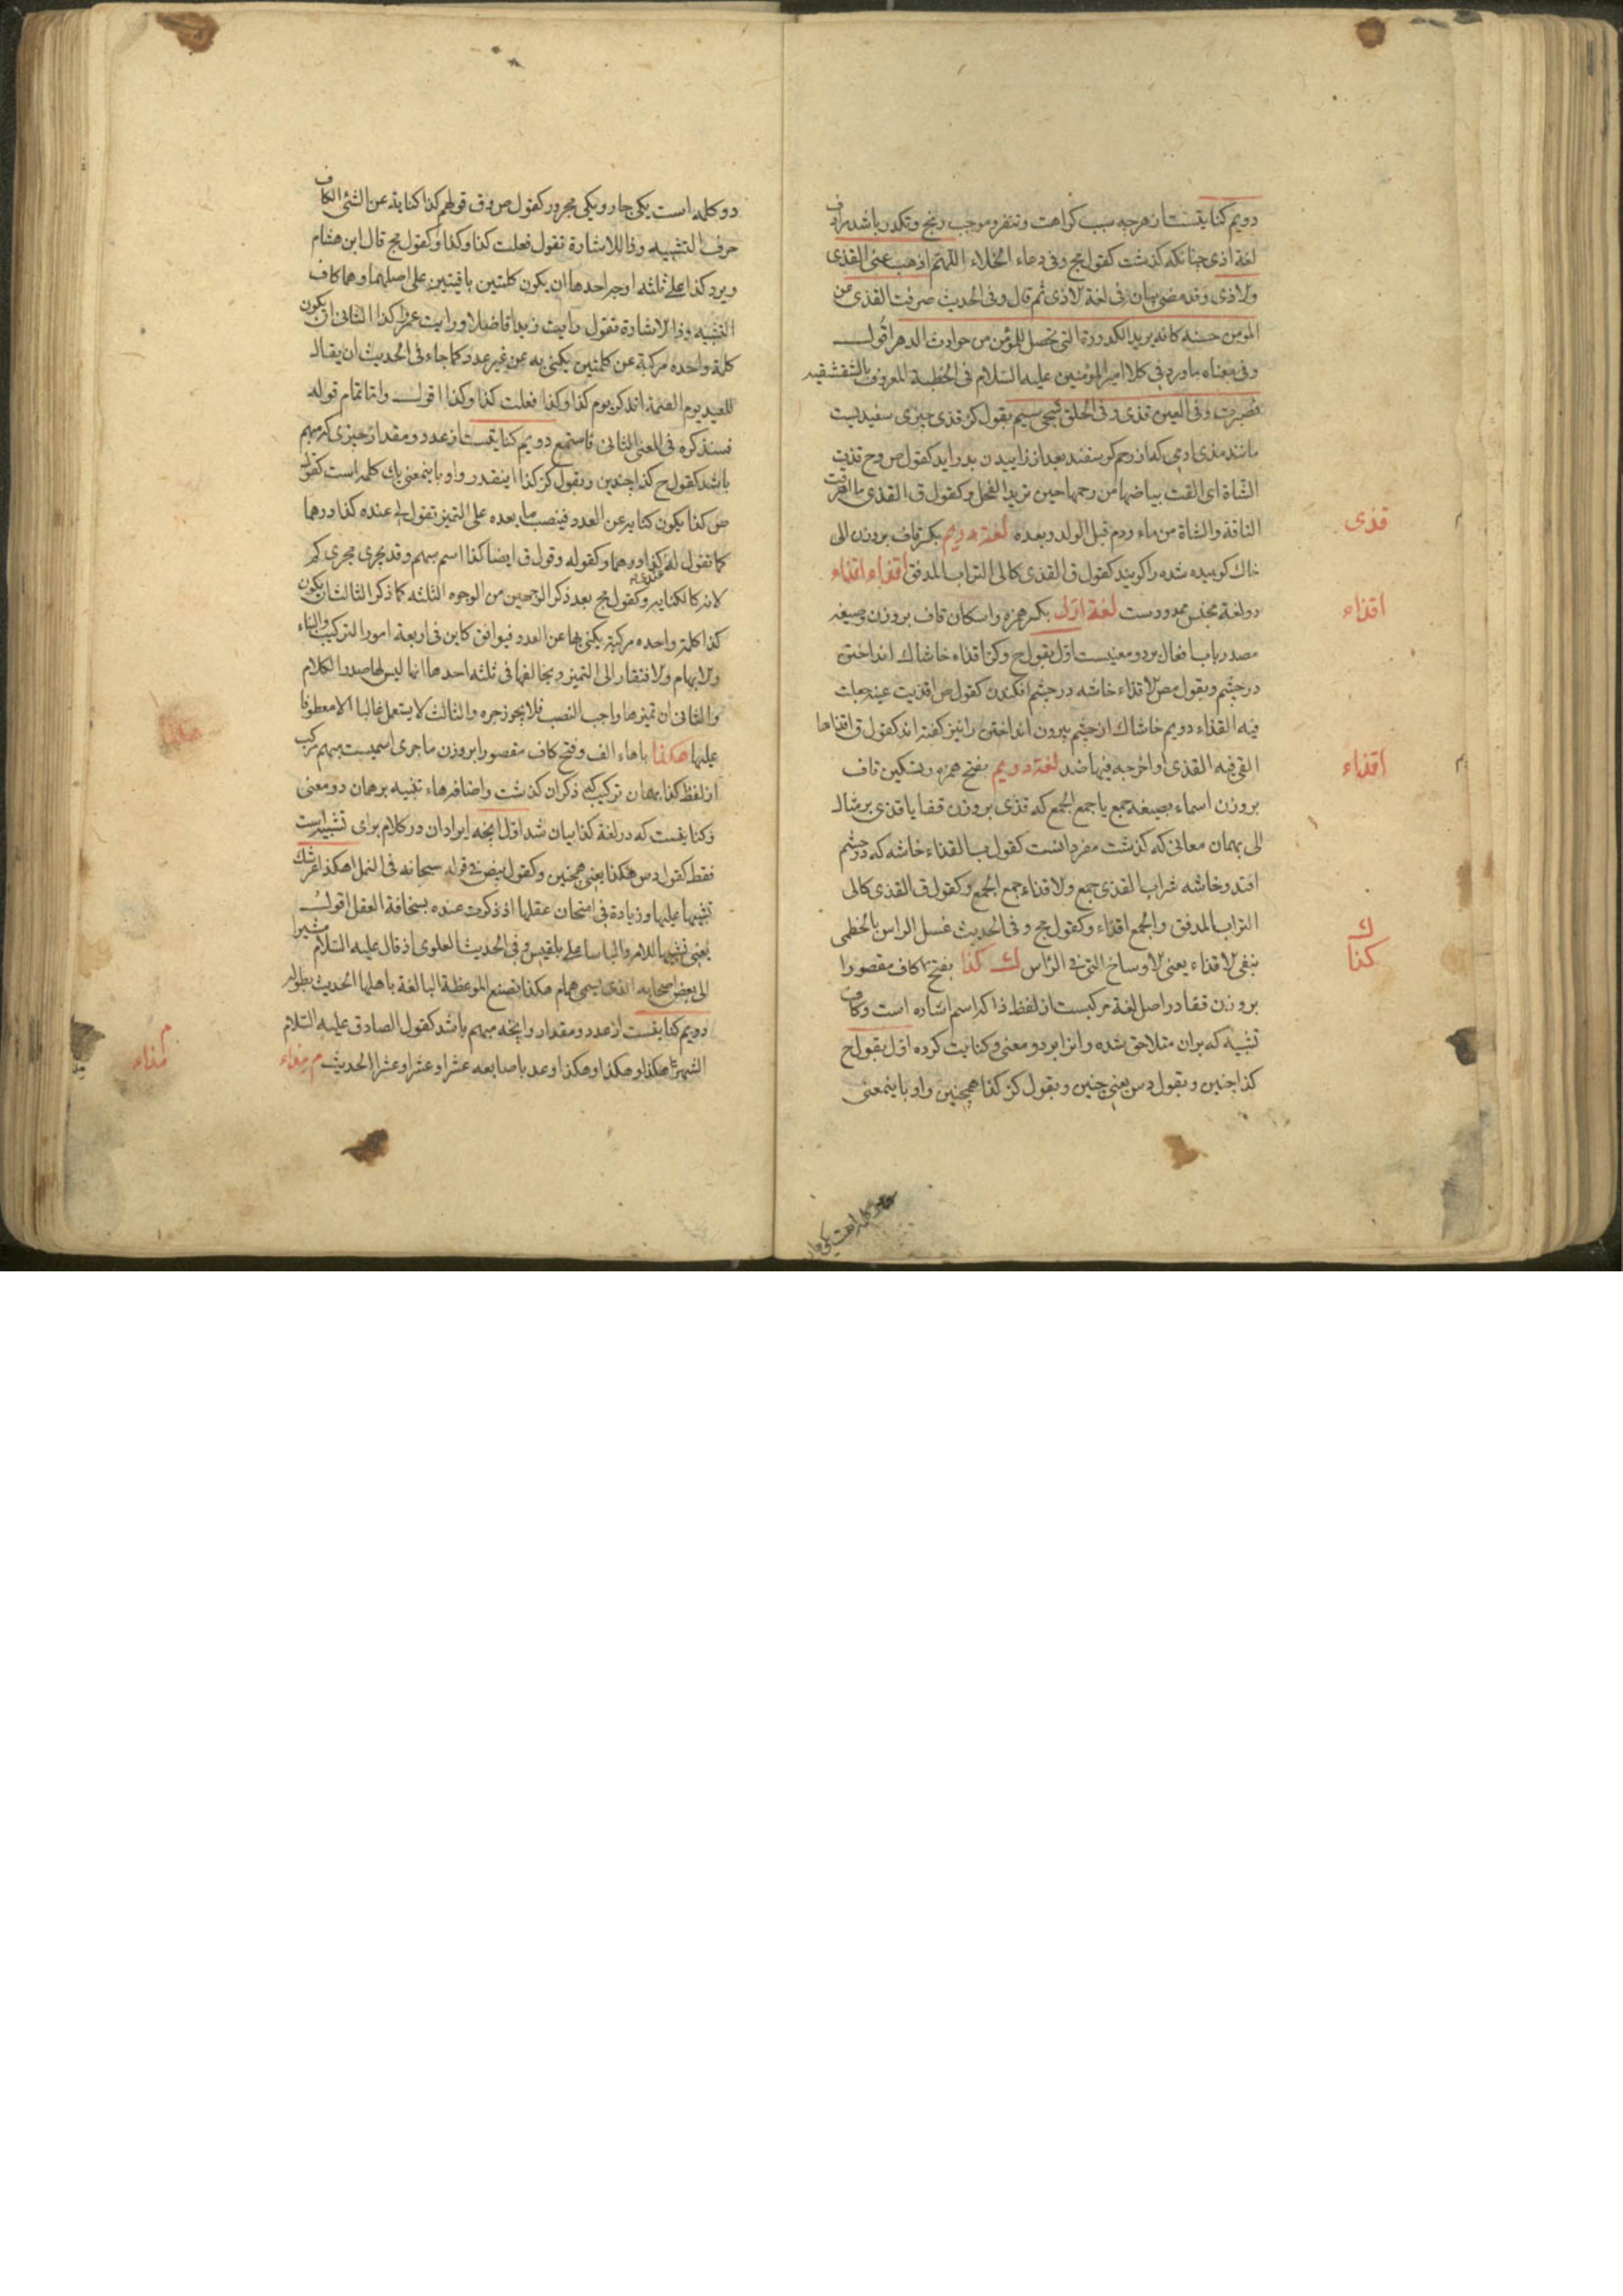 دویم کنایتست از هرچه سبب کراهت و تنفر و موجب رنج و تکدر باشد مرادف
لغة اذی چنانکه گذشت کقول مج و فی دعاء الخلاء اللهم اذهب عنی القذی
والاذی وقد مضی بیان فی لغة الاذی ثم قال و فی الحدیث صرفت القذی عن
المومن حسنة کانه یرید الکدورة التی تحصل للمؤمن من حوادث الدهر اقول
وفی معناه ماورد فی کلام امیر المؤمنین علیه السلام فی الخطبة المعروف بالشقشقیه
فصبرت و فی العین قذی و فی الحلق شجی سیم بقول کز قذی چیزی سفیدیست
مانند مذی ادمی که از رحم گوسفند بعد از زاییدن بدر آید کقول ص وح قذت
الشاة ای القت بیاضها من رحمها حین ترید الفحل و کقول ق القذی ما
الناقة والشاة من ماء و دم قبل الولد و بعده لغة دویم بکسر قاف بر وزن الی
قذی
خاک کوبیده شده را گویند کقول ق القذی کالی التراب المدقق اقذاء اقذاء
دو لغة مجنس ممدودست لغة اول بکسر همزه و اسکان قاف بر وزن و صیغه
اقذاء
مصدر باب افعال بر دو معنیست اول بقول ح و کز اقذاء خاشاک انداختن
در چشم و بقول مص الاقذاء خاشه در چشم افکندن کقول ص اقذیت عینه جعلت
فیه القذاء دویم خاشاک از چشم بیرون انداختن را نیز گفته اند کقول ق اقذاها
القی فیه القذی او اخرجه فیها ضد لغة دویم بفتح همزه و بتسکین قاف
اقذاء
بر وزن اسماء بصیغه جمع یا جمع الجمع که قذی بر وزن قفا یا قذی بر مثال
الی بهمان معانی که گذشت مفرد انست کقول ب القذاء خاشه که در چشم
افتد و خاشه شراب القذی جمع والاقذاء جمع الجمع و کقول ق القذی کالی
التراب المدقق والجمع اقذاء و کقول مج و فی الحدیث غسل الراس بالخطمی
ینفی الاقذاء یعنی الاوساخ التی فی الرأس ک کذا بفتح کاف مقصورا
ک
کذا
بر وزن قفا در اصل لغة مرکبست از لفظ ذا که اسم اشاره است و کاف
تشبیه که بران متلاحق شده و انرا بر دو معنی و کنایت کرده اول بقول ح
کذا چنین و بقول دس یعنی چنین و بقول کز کذا همچنین و او باینمعنی
دو کلمه است یکی جار و یکی مجرور کقول ص و ق قولهم کذا کنایة عن الشئ الکاف
حرف التشبیه و ذا للاشارة تقول فعلت کذا و کذا و کقول مج قال ابن هشام
و یرد کذا علی ثلثه اوجه احدها ان یکون کلمتین باقیتین علی اصلهما و هما کاف
التشبیه و ذا الاشارة تقول رایت زیدا فاضلا و رایت عمرا کذا الثانی ان یکون
کلمة واحده مرکبة عن کلمتین یکنی به عن غیر عدد کما جاء فی الحدیث ان یقال
للعبد یوم القیمة اتذکر یوم کذا و کذا فعلت کذا و کذا اقول و اما تمام قوله
فسنذکره فی المعنی الثانی فاستمع دویم کنایتست از عدد و مقدار چیزی که مبهم
باشد کقول ح کذا چندین و بقول کز کذا اینقدر و او باینمعنی یک کلمه است کقول
ص کذا یکون کنایه عن العدد فینصب ما بعده علی التمیز تقول له عنده کذا درهما
کما تقول له عندی کذا درهما و کقوله و قول ق ایضا کذا اسم مبهم و قد یجری مجری کم
لانه کالکنایه و کقول مج بعد ذکر الوجهین من الوجوه الثلثه کما ذکر الثالث ان یکون
کذا کلمة واحده مرکبة یکنی بها عن العدد فیوافق کاین فی اربعة امور الترکیب والبناء
والابهام والافتقار الی التمیز و یخالفها فی ثلثه احدها انها لیس لها صدر الکلام
والثانی ان تمیزها واجب النصب فلا یجوز جره والثالث لا یستعمل غالبا الا معطوفا
علیها هکذا باهاء الف و فتح کاف مقصورا بر وزن ماجری اسمیست مبهم مرکب
هکذا
از لفظ کذا بهمان ترکیب که ذکر ان گذشت و اضافه هاء تنبیه بر همان دو معنی
و کنایتست که در لغة کذا بیان شد اول انچه ایراد ان در کلام برای تشبیه است
فقط کقول دس هکذا یعنی همچنین و کقول بیض فی قوله سبحانه فی النمل اهکذا عرشک
تشبیها علیها و زیادة فی امتحان عقلها اذ ذکرت عنده بسخافة العقل اقول مشیرا
یعنی تشبیها للامر والباسا علی بلقیس و فی الحدیث العلوی اذ قال علیه السلام
الی بعض اصحابه الذی اسمی همام هکذا تصنع الموعظة البالغة باهلها الحدیث بطوله
دویم کنایتست از عدد و مقدار و انچه مبهم باشد کقول الصادق علیه السلام
الشهر هکذا و هکذا و هکذا و عد باصابعه عشرا و عشرا و عشرا الحدیث م مذاء
م
مذاء